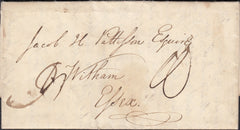 Jacob H. Pattisson Esquire
Witham
Essex